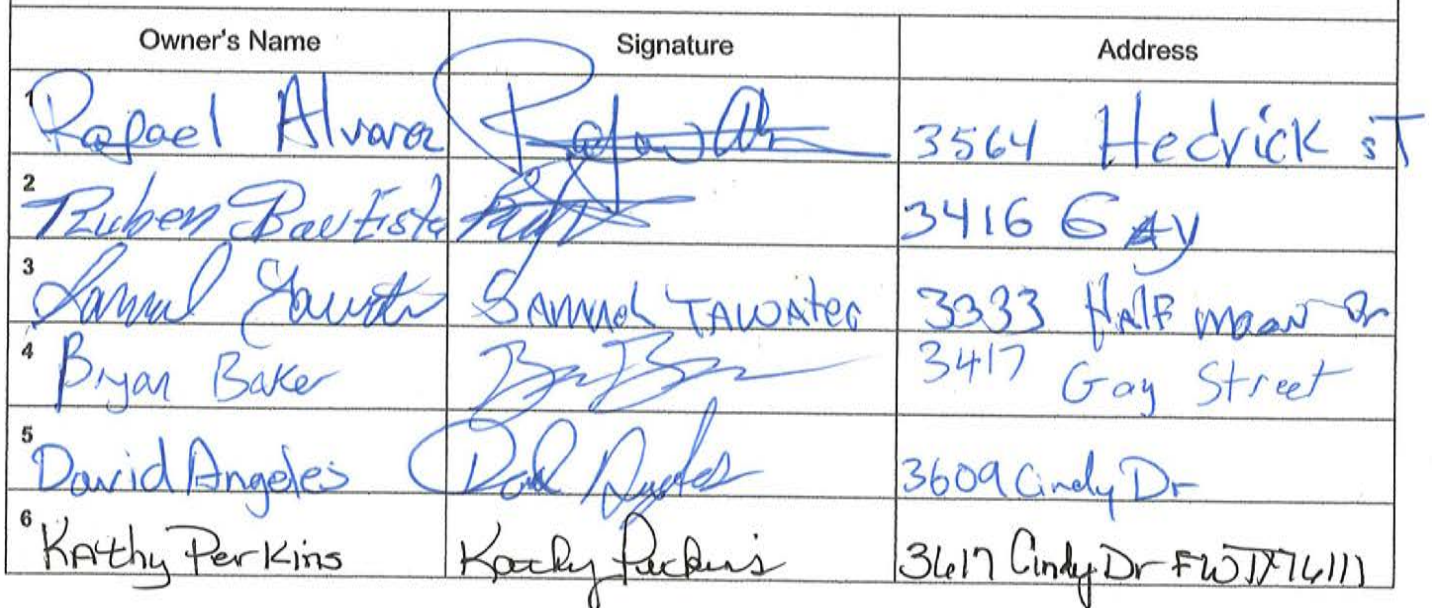 Owner's Name Signature Address
1 Rafael Alvarez Rafael Al 3564 Hedrick sT
2 Ruben Bautista 3416 GAy
3 Samuel Tawater SAMuel TAWATer 3333 HAlF mooN Dr
4 Bryan Baker 3417 Gay Street
5 David Angeles David Angeles 3609 Cindy Dr
6 KAthy Perkins Kathy Perkins 3617 Cindy Dr FW TX 76111